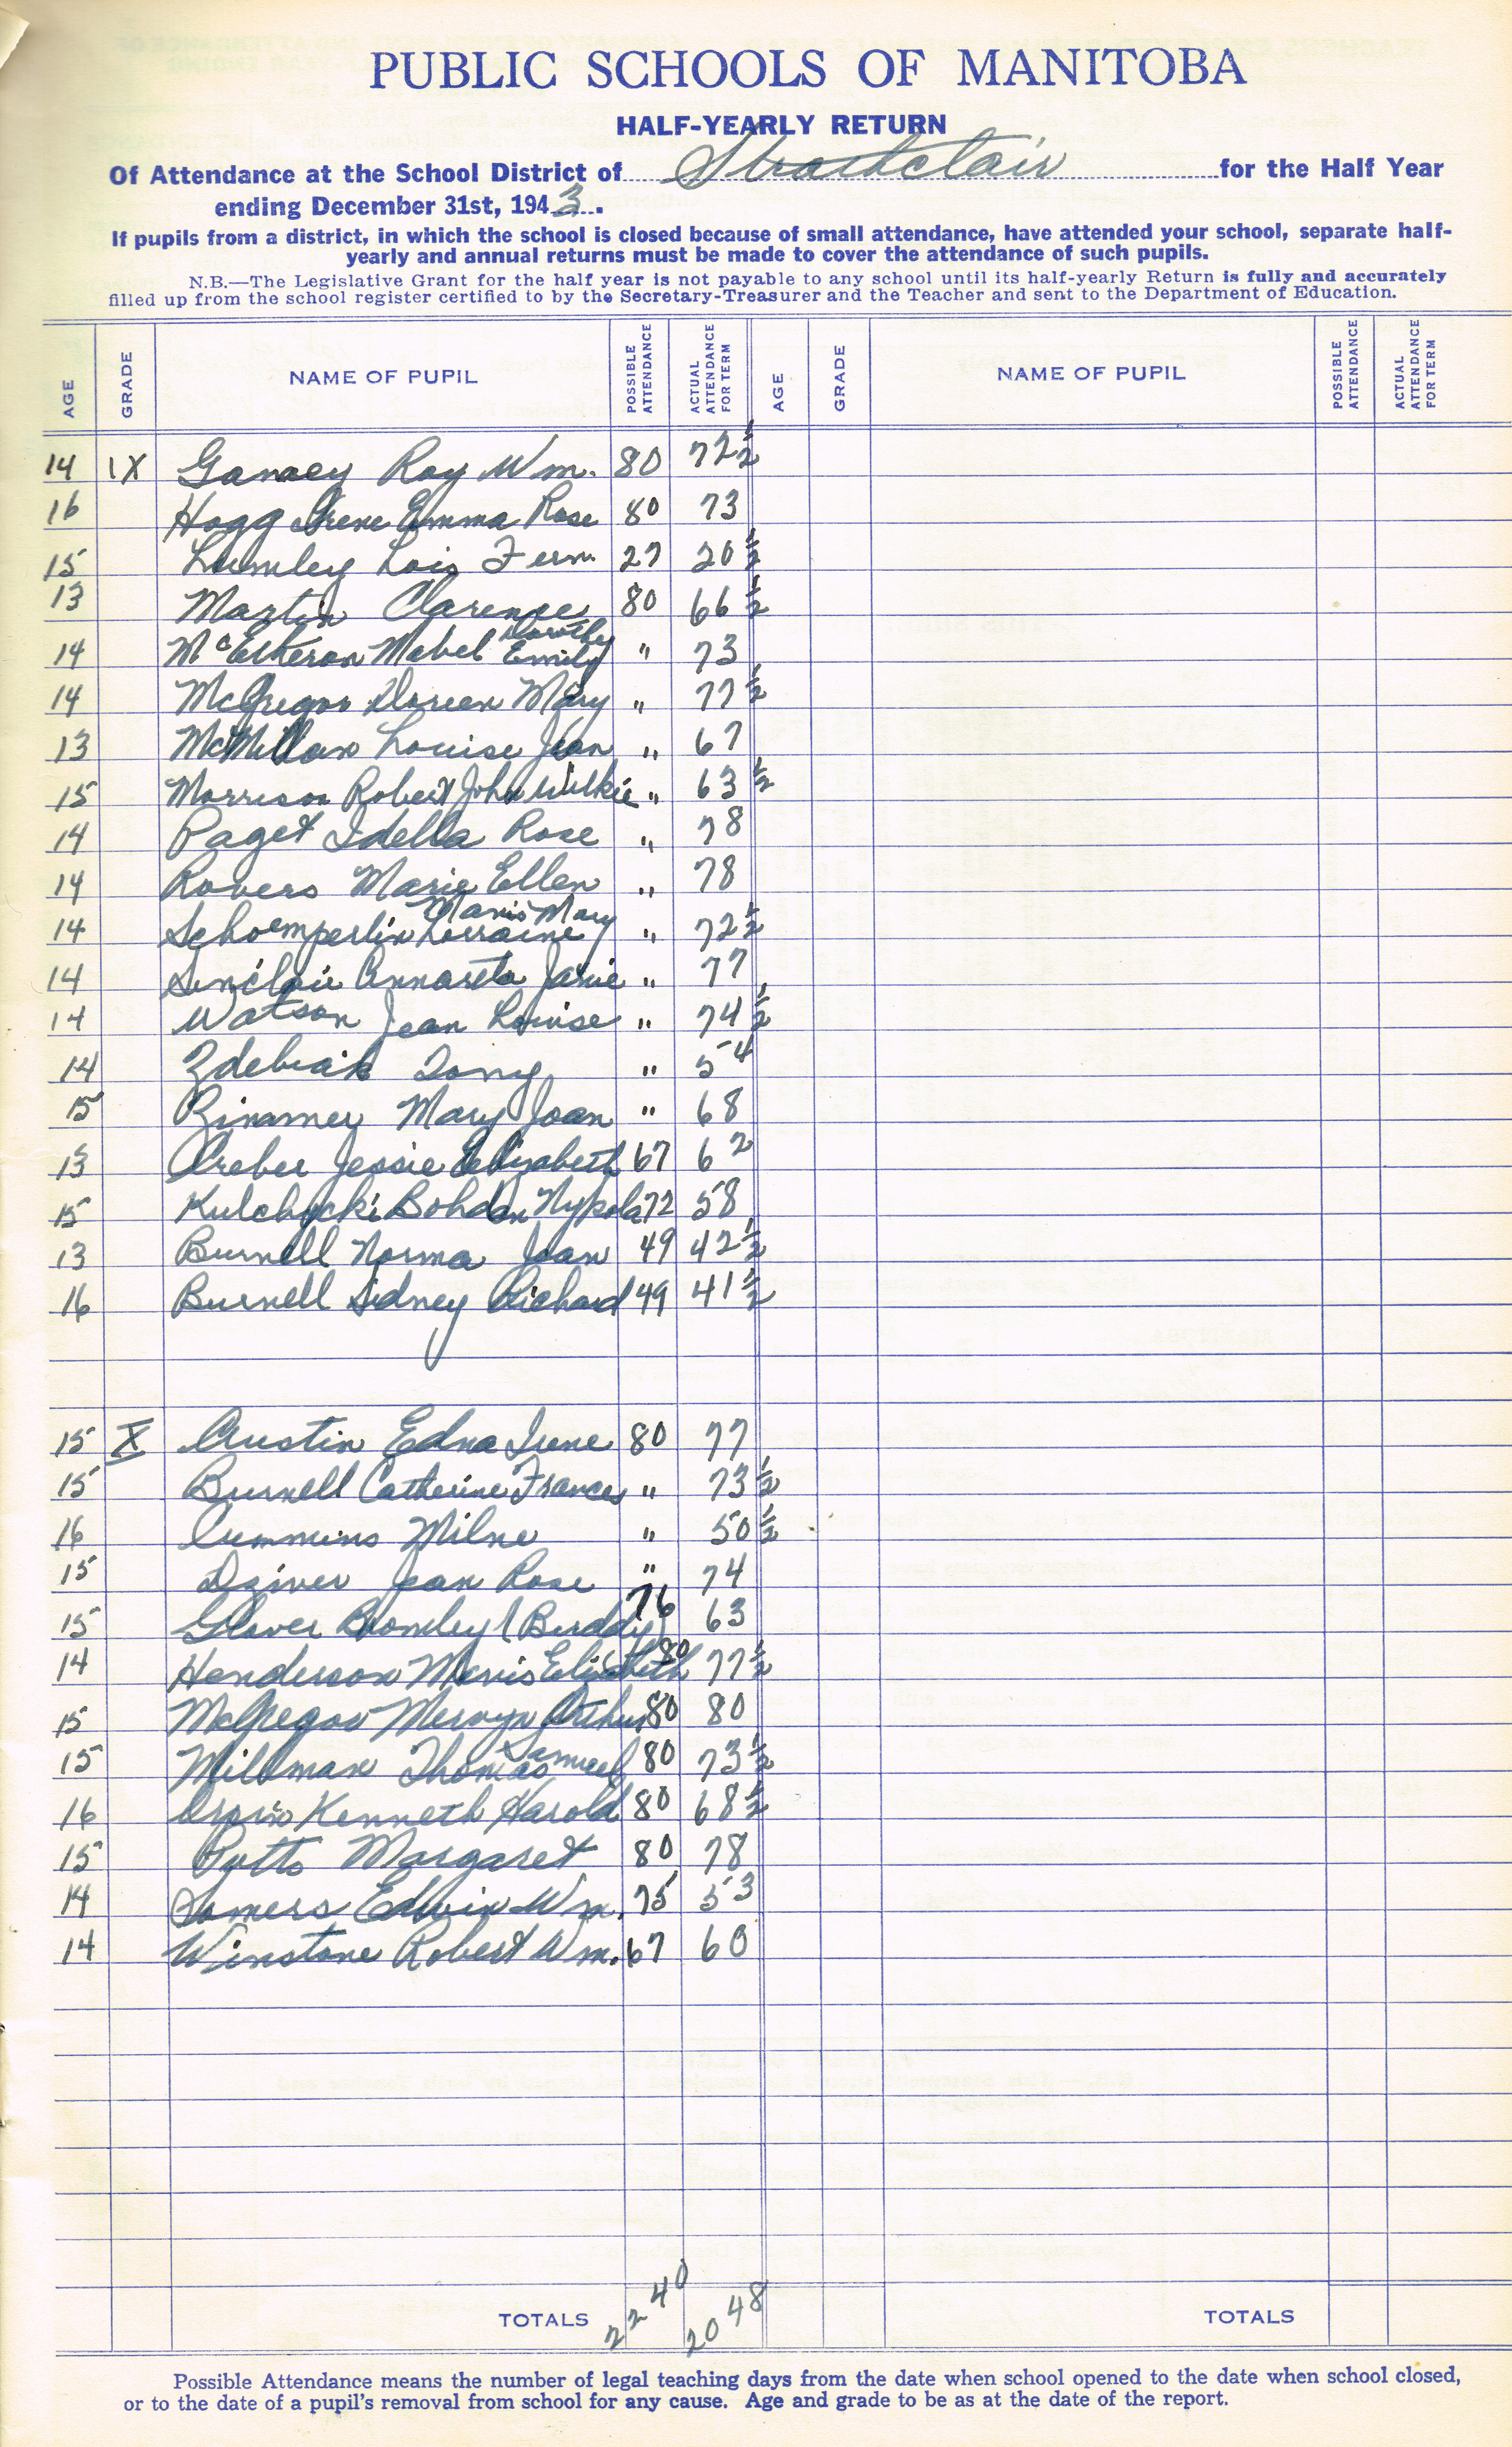 PUBLIC SCHOOLS OF MANITOBA
HALF-YEARLY RETURN
Of Attendance at the School District of Strathclair for the Half Year
ending December 31st, 1943.
If pupils from a district, in which the school is closed because of small attendance, have attended your school, separate half-
yearly and annual returns must be made to cover the attendance of such pupils.
N.B.—The Legislative Grant for the half year is not payable to any school until its half-yearly Return is fully and accurately
filled up from the school register certified to by the Secretary-Treasurer and the Teacher and sent to the Department of Education.
AGE GRADE NAME OF PUPIL POSSIBLE ATTENDANCE ACTUAL ATTENDANCE FOR TERM AGE GRADE NAME OF PUPIL POSSIBLE ATTENDANCE ACTUAL ATTENDANCE FOR TERM
14 IX Roy Wm. 80 72½
16 Hogg Irene Emma Rose 80 73
15 Lumley Lois Fern 27 20½
13 Martin Clarence 80 66½
14 Mabel Dorothy Emily " 73
14 McGregor Doreen Mary " 77½
13 McMillan Louise Jean " 67
15 Morrison Robert John Wilkie " 63½
14 Paget Idella Rose " 78
14 Rovers Marie Ellen " 78
14 Schoemperlin Mavis Mary Lorraine " 72½
14 Sinclair Annareta Janie " 77
14 Watson Jean Louise " 74½
14 Zdebiak Tony " 54
15 Mary Joan " 68
13 Creber Jessie Elizabeth 67 62
15 Kulchycki Bohdan Nykola 72 58
13 Burnell Norma Joan 49 42½
16 Burnell Sidney Richard 49 41½
15 X Austin Edna Irene 80 77
15 Burnell Catherine Frances " 73½
16 Cummins Milne " 50½
15 Driver Jean Rose " 74
15 Glover Bromley (Buddy) 76 63
14 Henderson Mavis Elizabeth 80 77½
15 McGregor Mervyn Arthur 80 80
15 Millman Thomas Samuel 80 73½
16 Kenneth Harold 80 68½
15 Potts Margaret 80 78
14 Somers Edwin Wm. 75 53
14 Winstone Robert Wm. 67 60
TOTALS 2240 2048 TOTALS
Possible Attendance means the number of legal teaching days from the date when school opened to the date when school closed,
or to the date of a pupil's removal from school for any cause. Age and grade to be as at the date of the report.